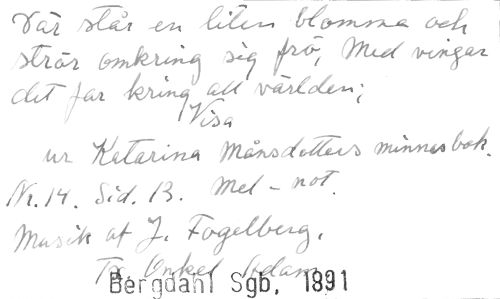 Där står en liten blomma och
strör omkring sig frö, Med vingar
det far kring all världen;
Visa
ur Katarina Månsdotters minnesbok.
Nr. 14. Sid. 13. Mel-not.
Musik af J. Fogelberg.
Tx. Onkel Adam
Bergdahl Sgb. 1891